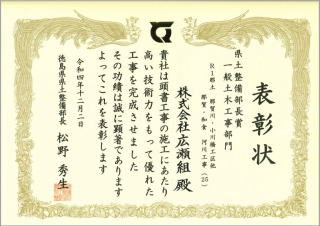 表彰状
県土整備部長賞
一般土木工事部門
R1那土 那賀川・小川橋工区他
那賀・和食 河川工事(25)
株式会社広瀬組 殿
貴社は頭書工事の施工にあたり
高い技術力をもって優れた
工事を完成させました
その功績は誠に顕著であります
よってこれを表彰します
令和四年十二月二日
徳島県県土整備部長 松野 秀生